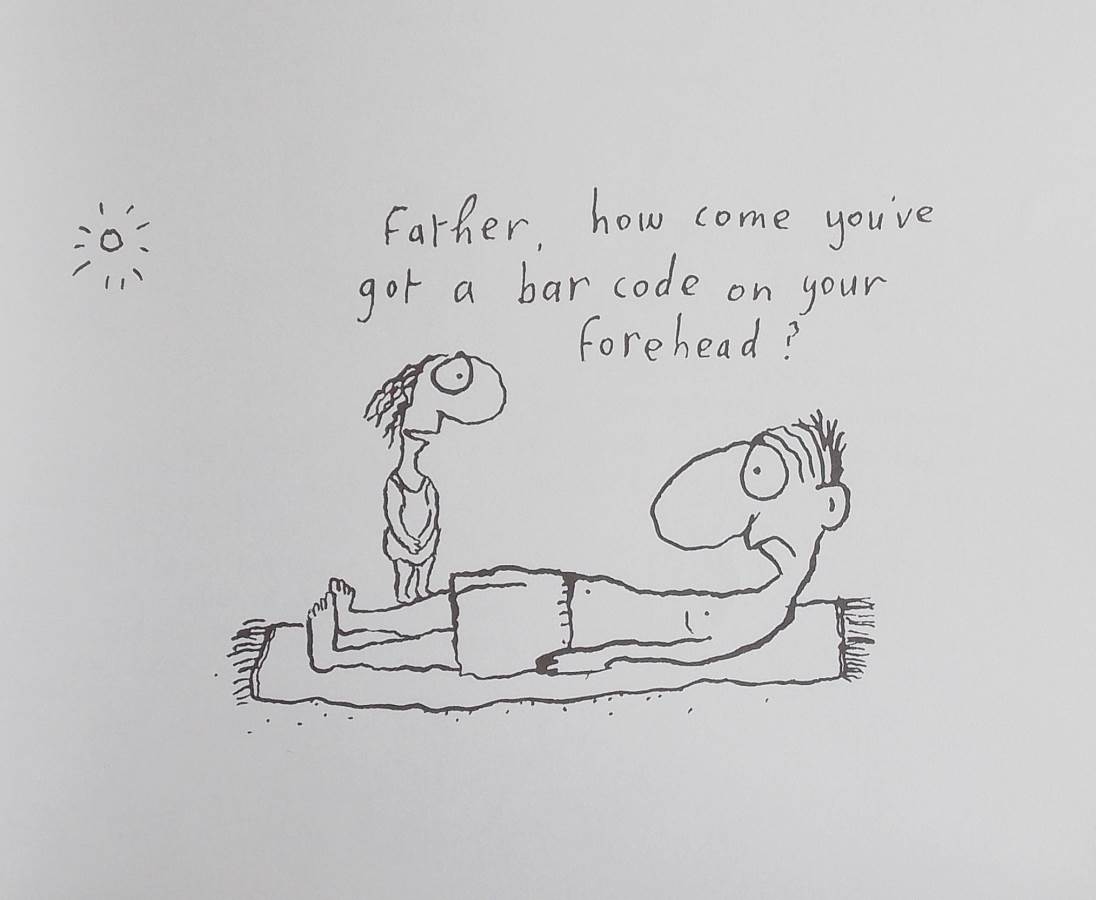 Father, how come you've
got a bar code on your
forehead?